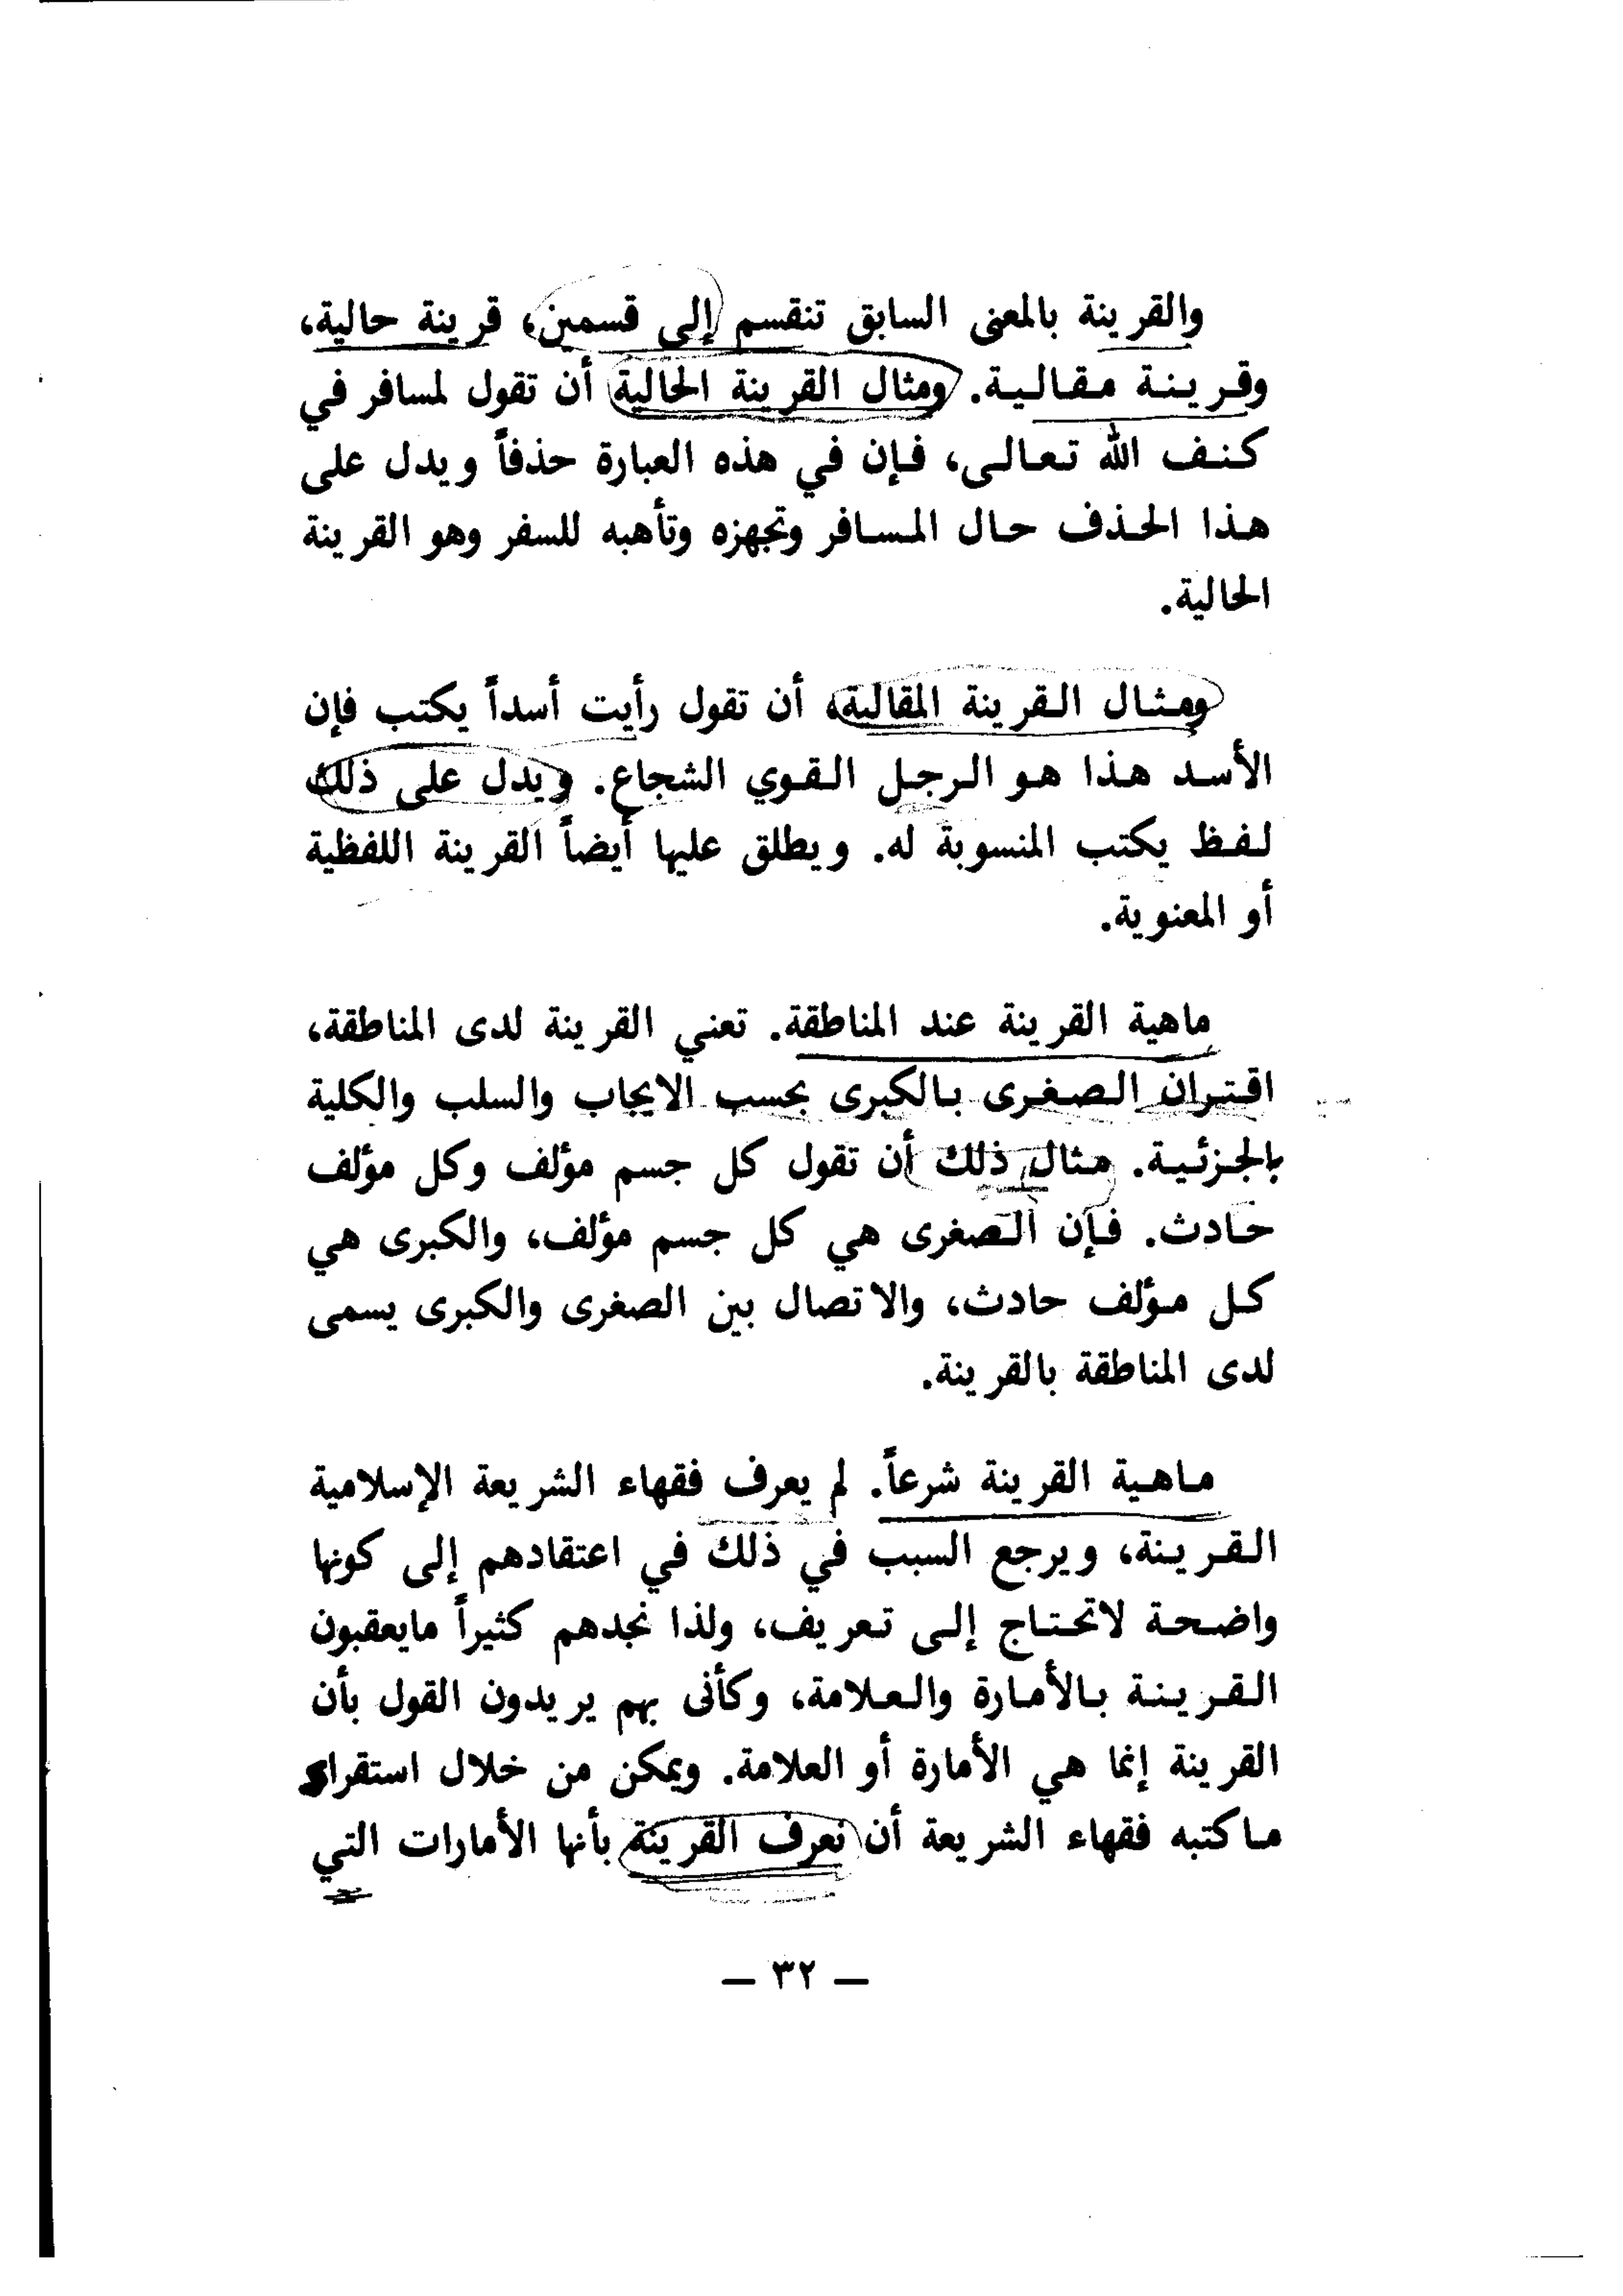 والقرينة بالمعنى السابق تنقسم إلى قسمين، قرينة حالية،
وقرينة مقالية. ومثال القرينة الحالية أن تقول لمسافر في
كنف الله تعالى، فإن في هذه العبارة حذفاً ويدل على
هذا الحذف حال المسافر وتجهزه وتأهبه للسفر وهو القرينة
الحالية.
ومثال القرينة المقالية، أن تقول رأيت أسداً يكتب فإن
الأسد هذا هو الرجل القوي الشجاع. ويدل على ذلك
لفظ يكتب المنسوبة له. ويطلق عليها أيضاً القرينة اللفظية
أو المعنوية.
ماهية القرينة عند المناطقة. تعني القرينة لدى المناطقة،
اقتران الصغرى بالكبرى بحسب الايجاب والسلب والكلية
بالجزئية. مثال ذلك أن تقول كل جسم مؤلف وكل مؤلف
حادث. فإن الصغرى هي كل جسم مؤلف، والكبرى هي
كل مؤلف حادث، والاتصال بين الصغرى والكبرى يسمى
لدى المناطقة بالقرينة.
ماهية القرينة شرعاً. لم يعرف فقهاء الشريعة الإسلامية
القرينة، ويرجع السبب في ذلك في اعتقادهم إلى كونها
واضحة لاتحتاج إلى تعريف، ولذا نجدهم كثيراً مايعقبون
القرينة بالأمارة والعلامة، وكأنى بهم يريدون القول بأن
القرينة إنما هي الأمارة أو العلامة. ويمكن من خلال استقراء
ماكتبه فقهاء الشريعة أن نعرف القرينة بأنها الأمارات التي
— ٣٢ —